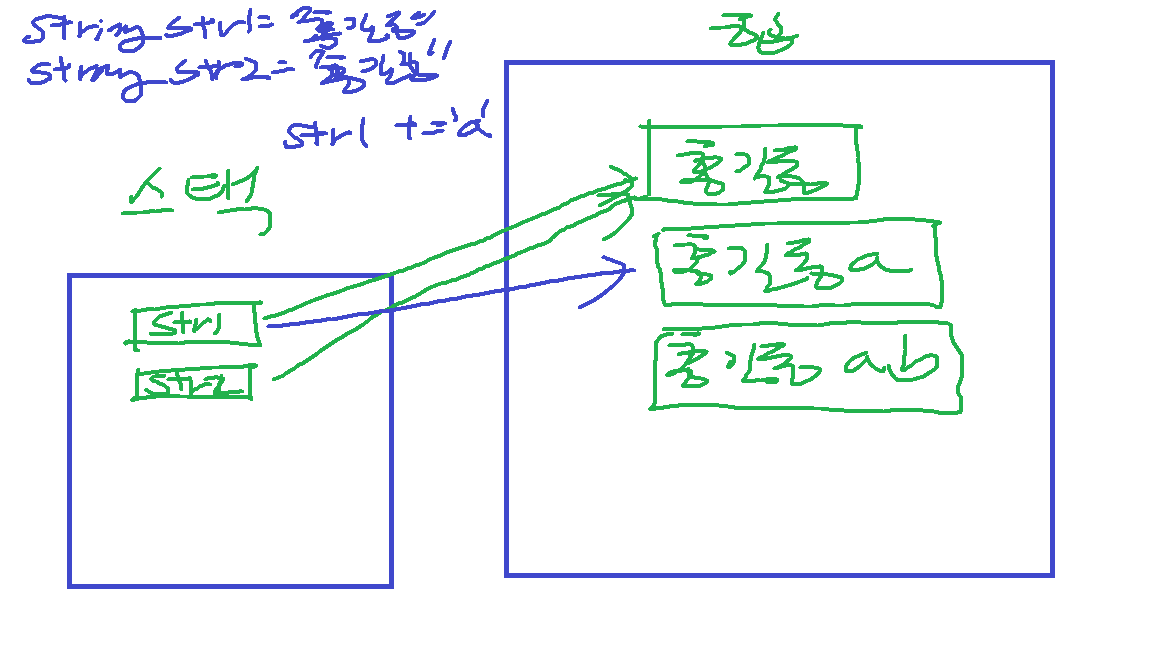 String str1 = "홍길동"
String str2 = "홍길동"
str1 += 'a'
스택
str1
str2
홍길동
홍길동a
홍길동ab